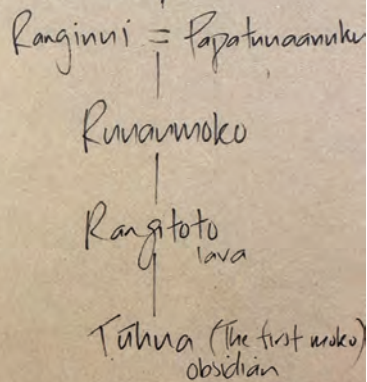 Ranginui = Papatuuaanuku
Ruuaumoko
Rangitoto
lava
Tūhua (The first moko)
obsidian